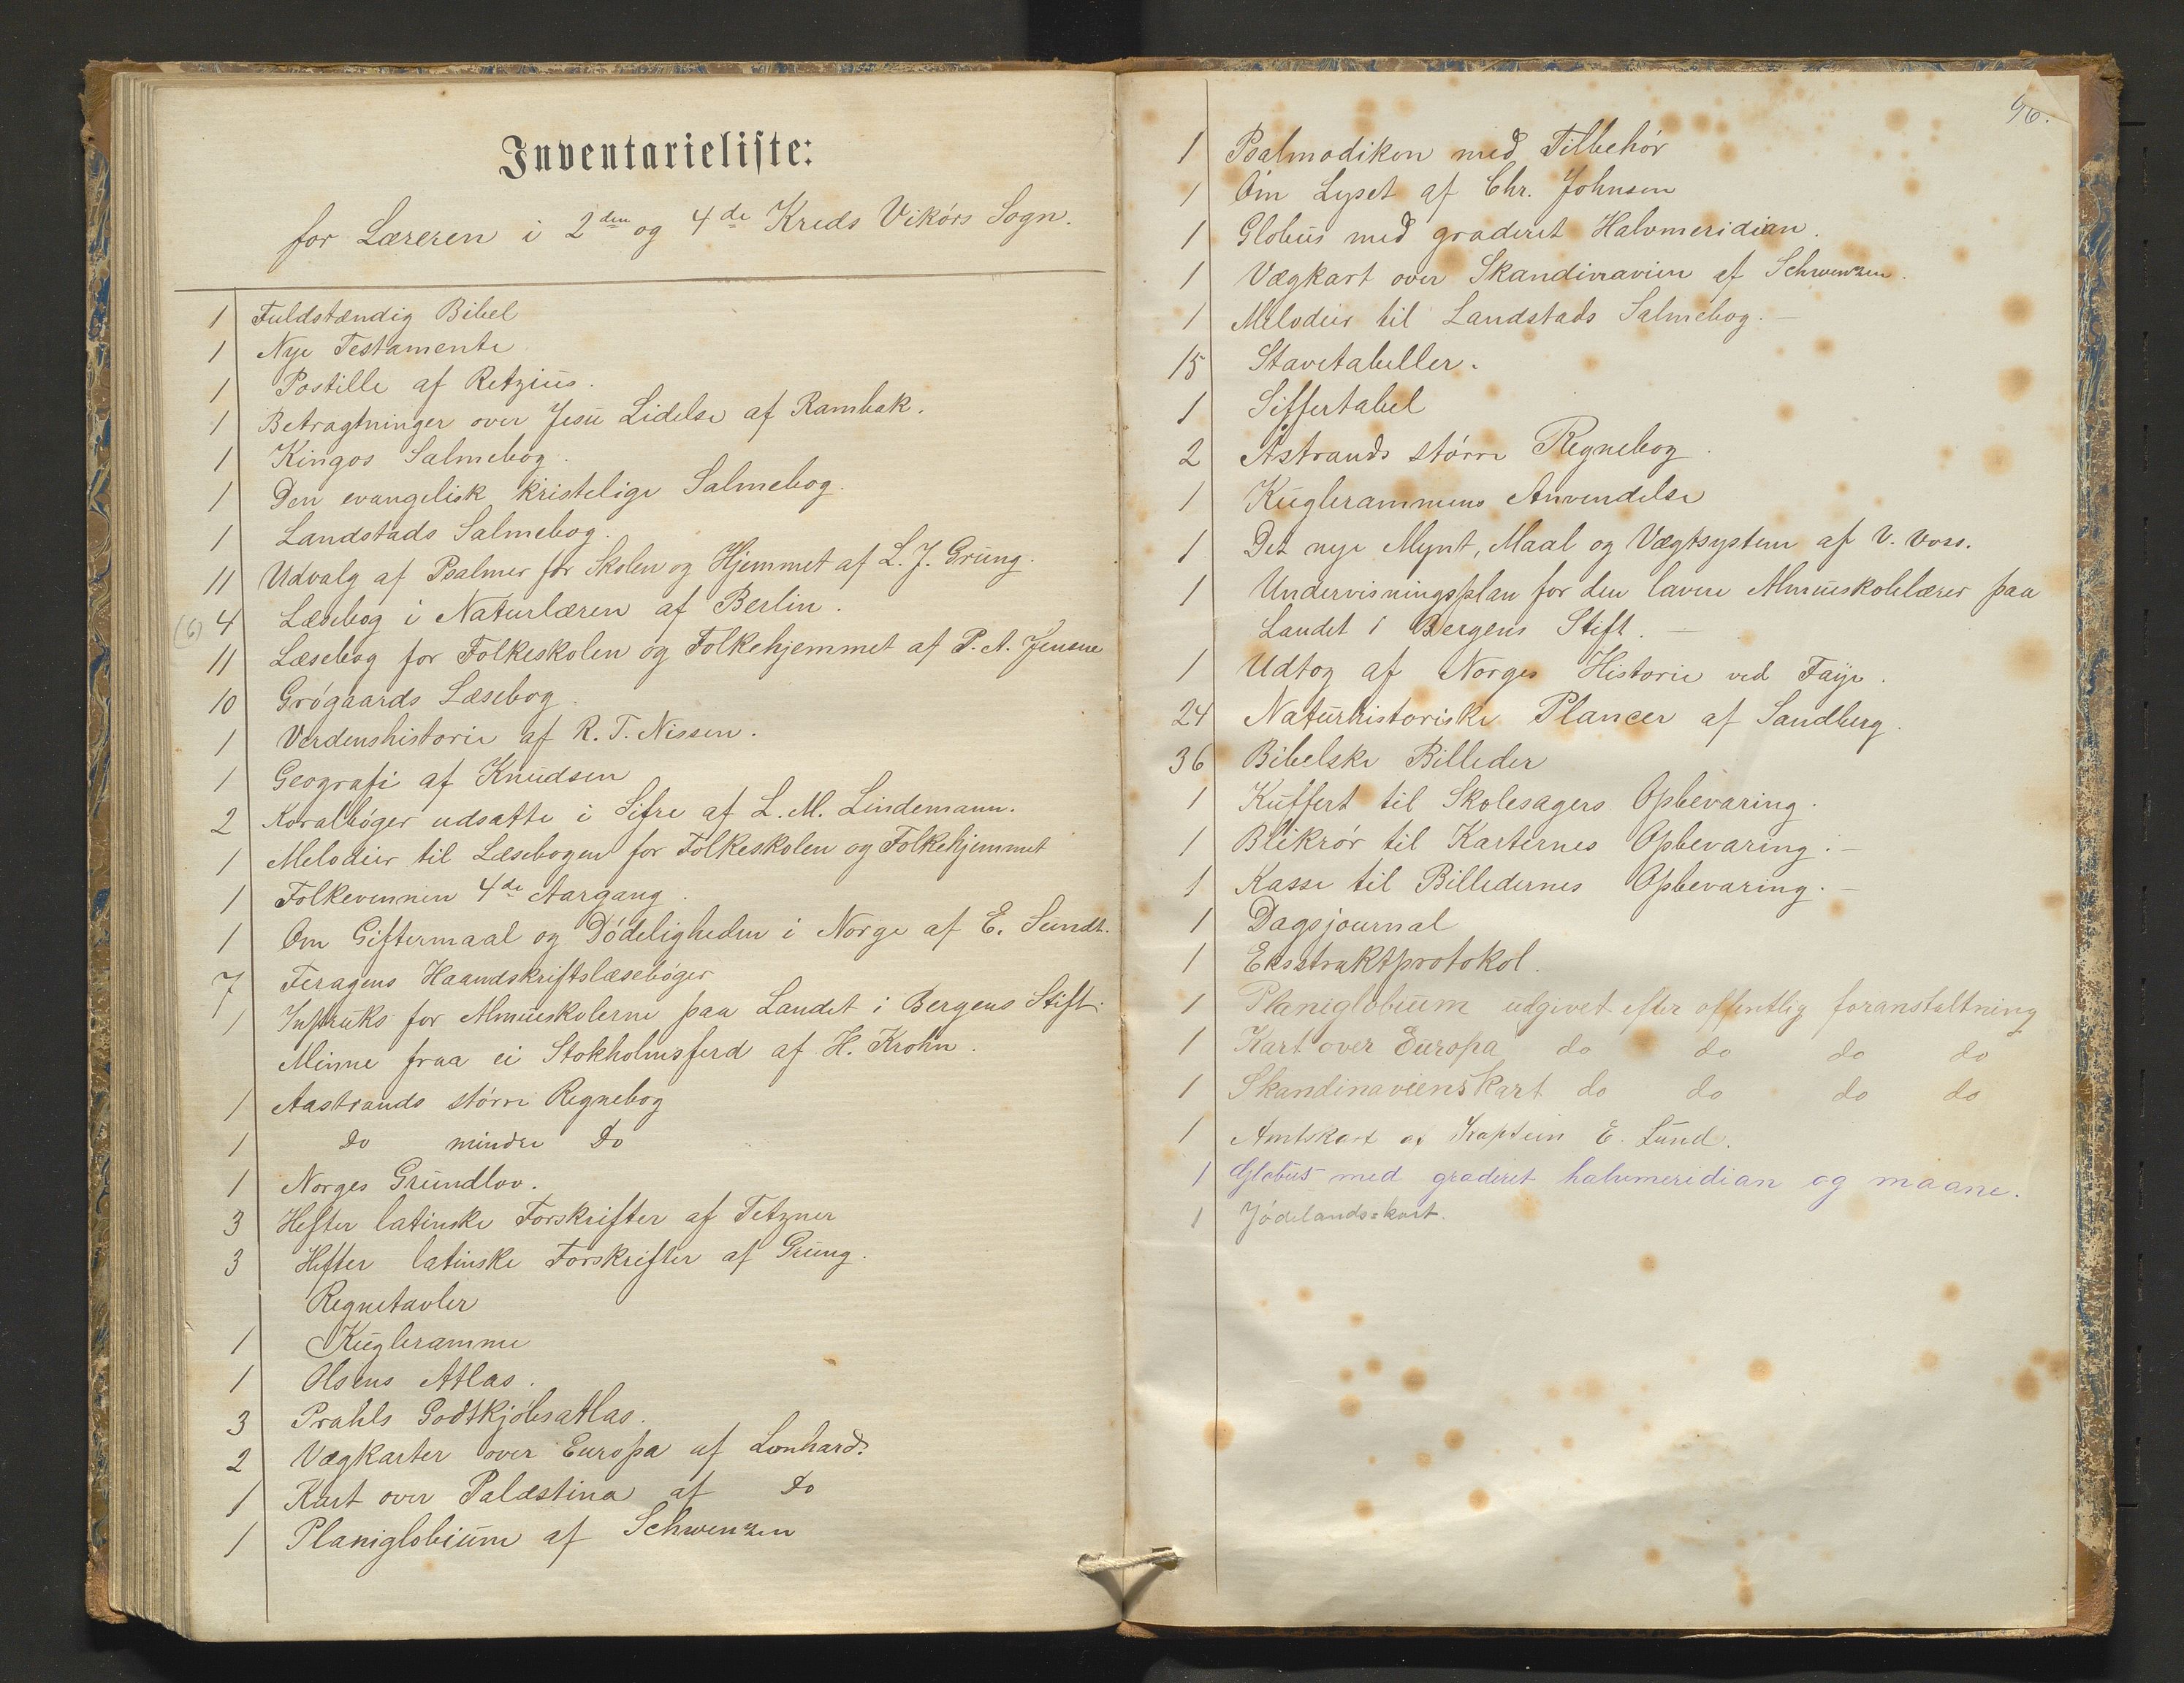 Inventarieliste:
for Læreren i 2den og 4de Kreds Vikørs Sogn.
1 Fuldstændig Bibel
1 Nye Testamente
1 Postille af Retzius.
1 Betragtninger over Jesu Lidelse af Rambak.
1 Kingos Salmebog.
1 Den evangelisk kristelige Salmebog.
1 Landstads Salmebog.
11 Udvalg af Psalmer for Skolen og Hjemmet af L. J. Grung.
(6) 4 Læsebog i Naturlæren af Berlin.
11 Læsebog for Folkeskolen og Folkehjemmet af P. A. Jensen
10 Grøgaards Læsebog.
1 Verdenshistorie af R. T. Nissen.
1 Geografi af Knudsen
2 Koralbøger udsatte i Sifre af L. M. Lindemann.
1 Melodier til Læsebogen for Folkeskolen og Folkehjemmet
1 Folkevennen 4de Aargang.
1 Om Giftermaal og Dødeligheden i Norge af E. Sundt.
7 Feragens Haandskriftslæsebøger
1 Instruks for Almueskolerne paa Landet i Bergens Stift.
Minne fraa ei Stokholmsferd af H. Krohn.
1 Aastrands større Regnebog
1 do mindre do
1 Norges Grundlov.
3 Hefter latinske Forskrifter af Tetzner
3 Hefter latinske Forskrifter af Grung.
Regnetavler
1 Kugleramme
1 Olsens Atlas.
3 Prahls Godtkjøbsatlas.
2 Vægkarter over Europa af Lonhard.
1 Kart over Palæstina af do
1 Planiglobium af Schwenzen
96.
1 Psalmodikon med Tilbehør
1 Om Lyset af Chr. Johnsen
1 Globus med graderet Halvmeridian.
1 Vægkart over Skandinavien af Schwenzen.
1 Melodier til Landstads Salmebog. -
15 Stavetabeller.
1 Siffertabel
2 Åstrands større Regnebog.
1 Kuglerammens Anvendelse
1 Det nye Mynt, Maal og Vægtsystem af V. Voss.
1 Undervisningsplan for den lavere Almueskolelærer paa
Landet i Bergens Stift. -
1 Udtog af Norges Historie ved Faye.
24 Naturhistoriske Plancer af Sandberg.
36 Bibelske Billeder
1 Kuffert til Skolesagers Opbevaring.
1 Blikrør til Karternes Opbevaring. -
1 Kasse til Billedernes Opbevaring. -
1 Dagsjournal
1 Eksstraktprotokol.
1 Planiglobium udgivet efter offentlig foranstaltning
1 Kart over Europa do do do do
1 Skandinavienskart do do do do
1 Amtskart af Kaptein E. Lund.
1 Globus med graderet halvmeridian og maane.
1 Jødelands=kart.